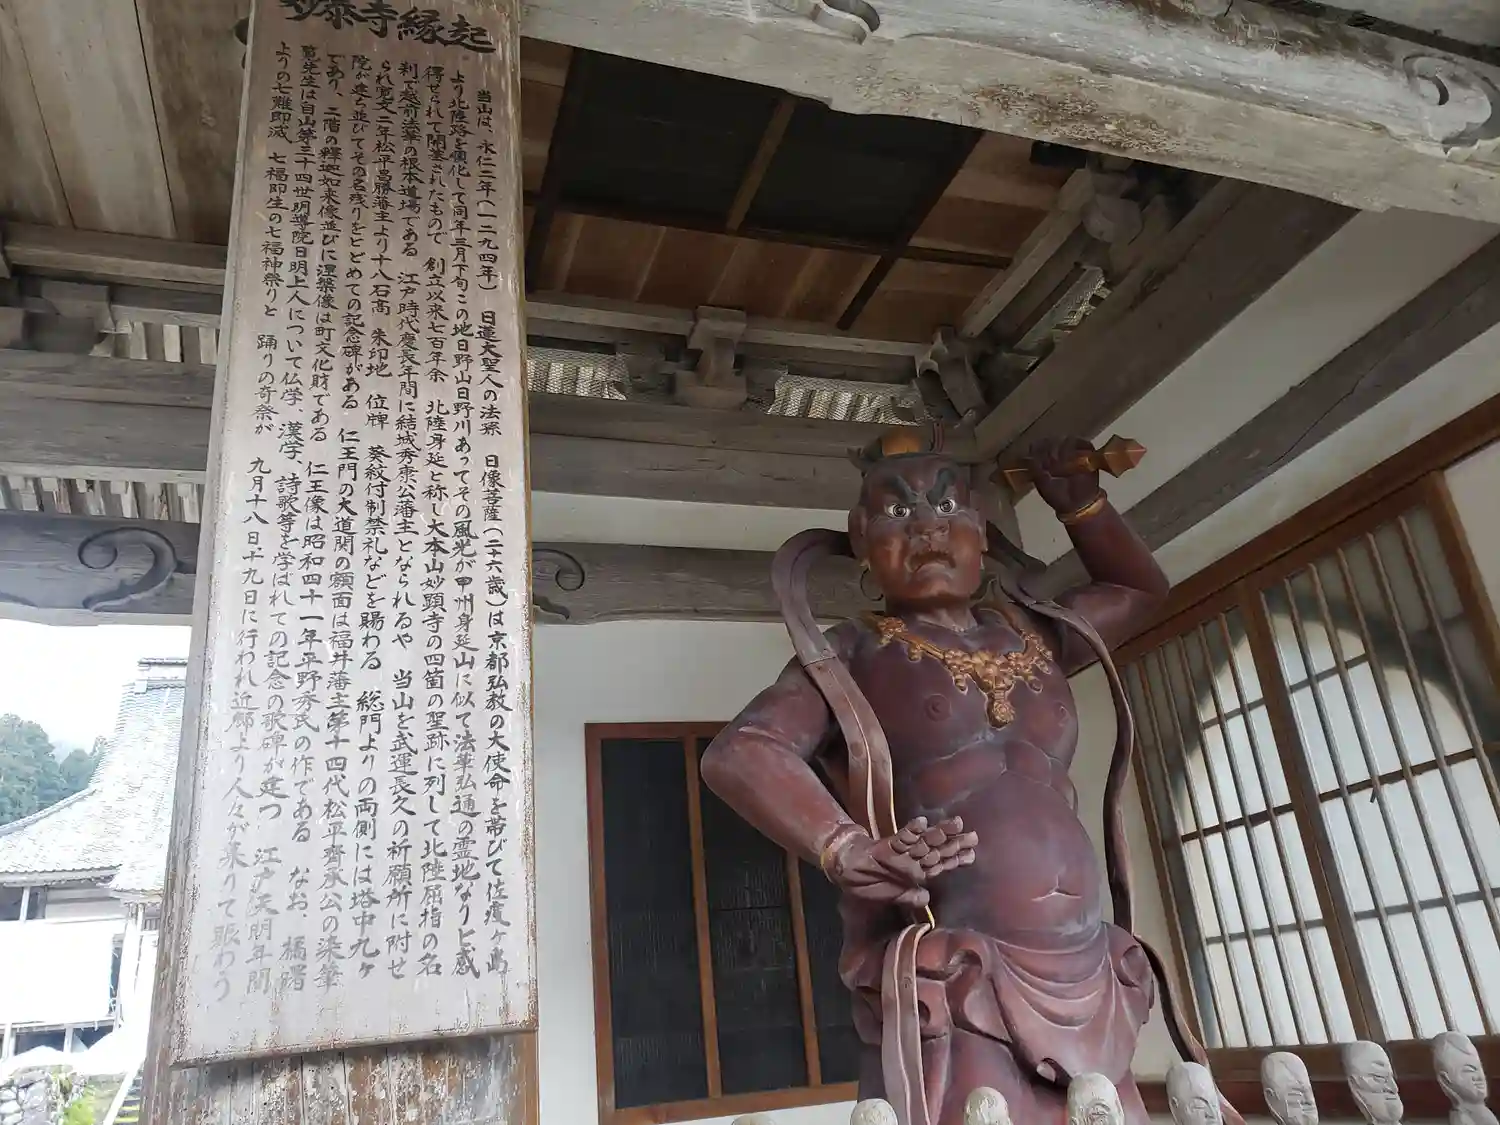 妙泰寺縁起
当山は、永仁二年(一二九四年) 日蓮大聖人の法孫 日像菩薩(二十六歳)は京都弘教の大使命を帯びて佐渡ヶ島
より北陸路を演化して同年三月下旬この地日野山日野川あってその風光が甲州身延山に似て法華弘通の霊地なりと感
得せられて開基されたもので 創立以来七百年余 北陸身延と称し大本山妙顕寺の四箇の聖跡に列して北陸屈指の名
刹で越前法華の根本道場である 江戸時代慶長年間に結城秀康公藩主となられるや 当山を武運長久の祈願所に附せ
られ寛文二年松平昌勝藩主より十八石高 朱印地 位牌 葵紋付制禁札などを賜わる 総門よりの両側には塔中九ヶ
院が建ち並びてその名残りをとどめての記念碑がある 仁王門の大道関の額面は福井藩主第十四代松平齊承公の染筆
であり、二階の釋迦如来像並びに涅槃像は町文化財である 仁王像は昭和四十一年平野秀民の作である なお、橘曙
覧先生は当山第三十四世明導院日明上人について仏学、漢学、詩歌等を学ばれての記念の歌碑が建つ 江戸天明年間
よりの七難即滅 七福即生の七福神祭りと 踊りの奇祭が 九月十八日・十九日に行われ近郷より人々が来りて賑わう